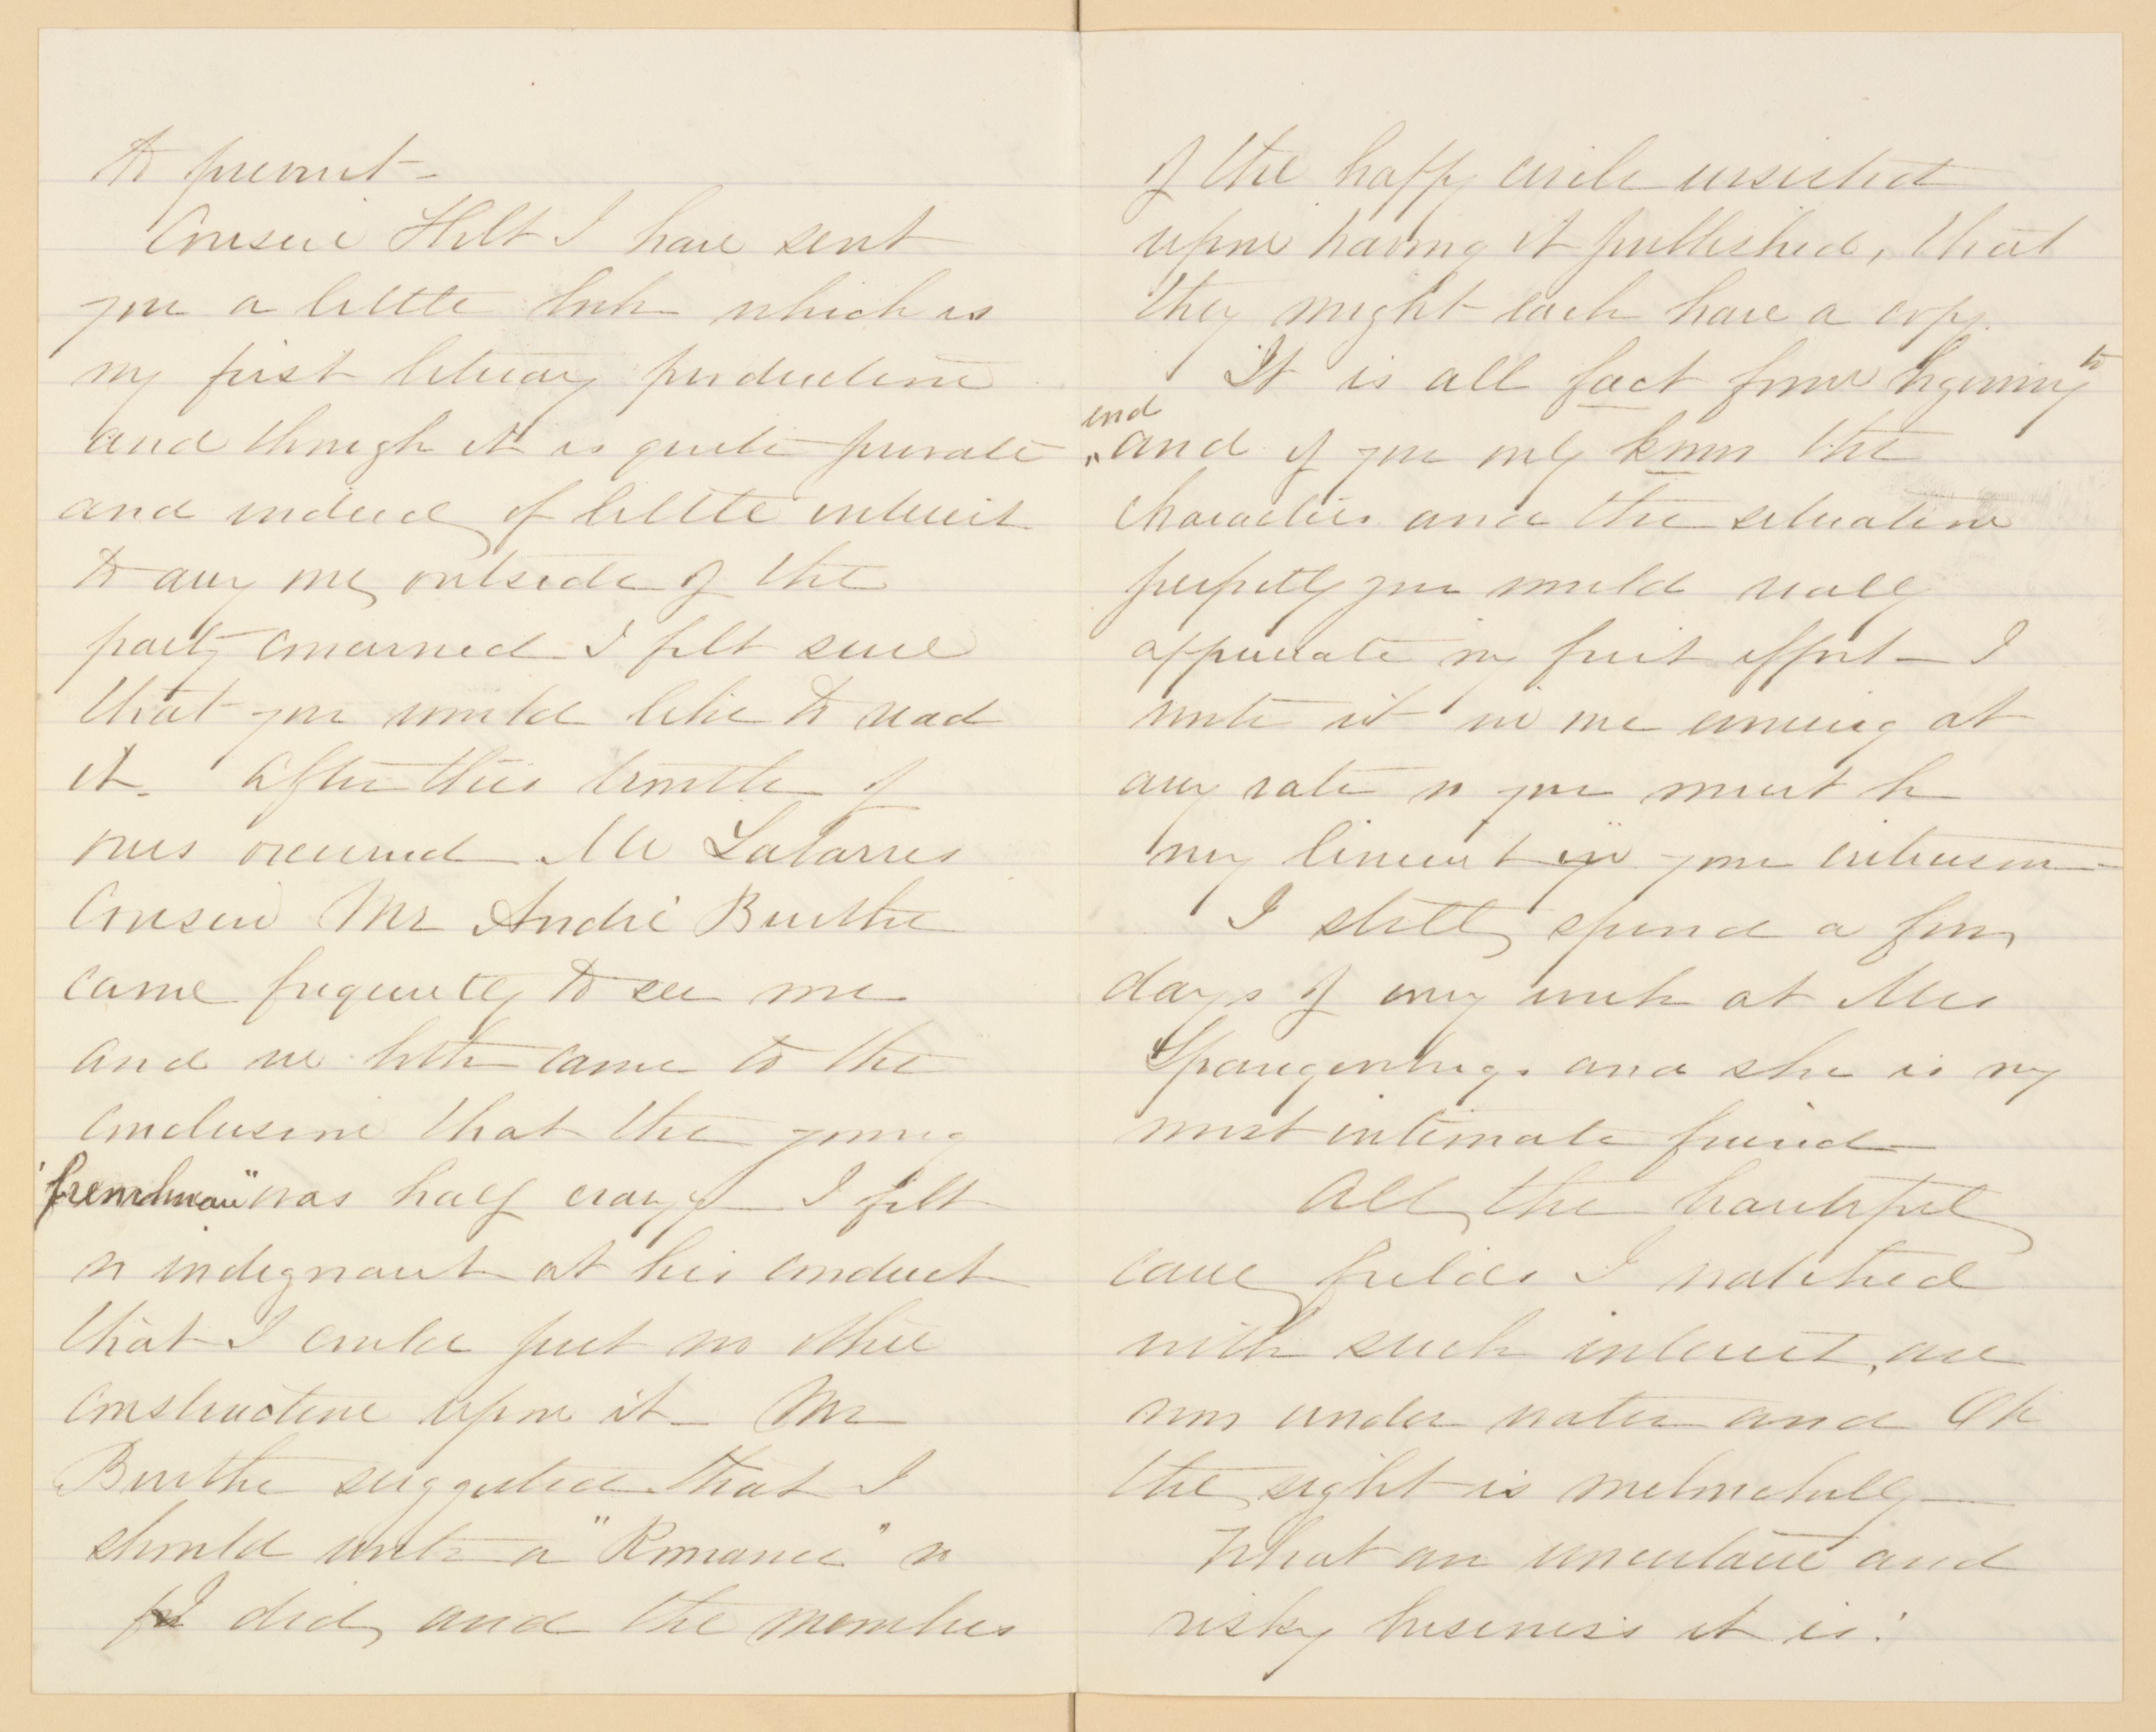 to prevent -
Cousin Holt I have sent
you a little book which is
my first literary production
and though it is quite private
and indeed of little interest
to any one, outside of the
party concerned I felt sure
that you would like to read
it. After this trouble of
ours occurred Mr Latarres
Cousin Mr André Burthe
came frequently to see me
and we both came to the
conclusion that the young
"frenchman" was half crazy - I felt
so indignant at his conduct
that I could put no other
construction upon it - Mr
Burthe suggested that I
should write a "Romance" so
I did, and the members
of the happy circle insisted
upon having it published, that
they might each have a copy.
It is all fact from begining to
end
and if you only knew the
characters and the situation
perfectly you would really
appreciate my first effort - I
wrote it in one evening at
any rate so you must be
very lenient in your criticism -
I still, spend a few
days of every week at Mrs
Spangenbergs and she is my
most intimate friend
All, the beautiful
cane fields I watched
with such interest, are
now under water and Oh
the sight is melancholy -
What an uncertain and
risky business it is!